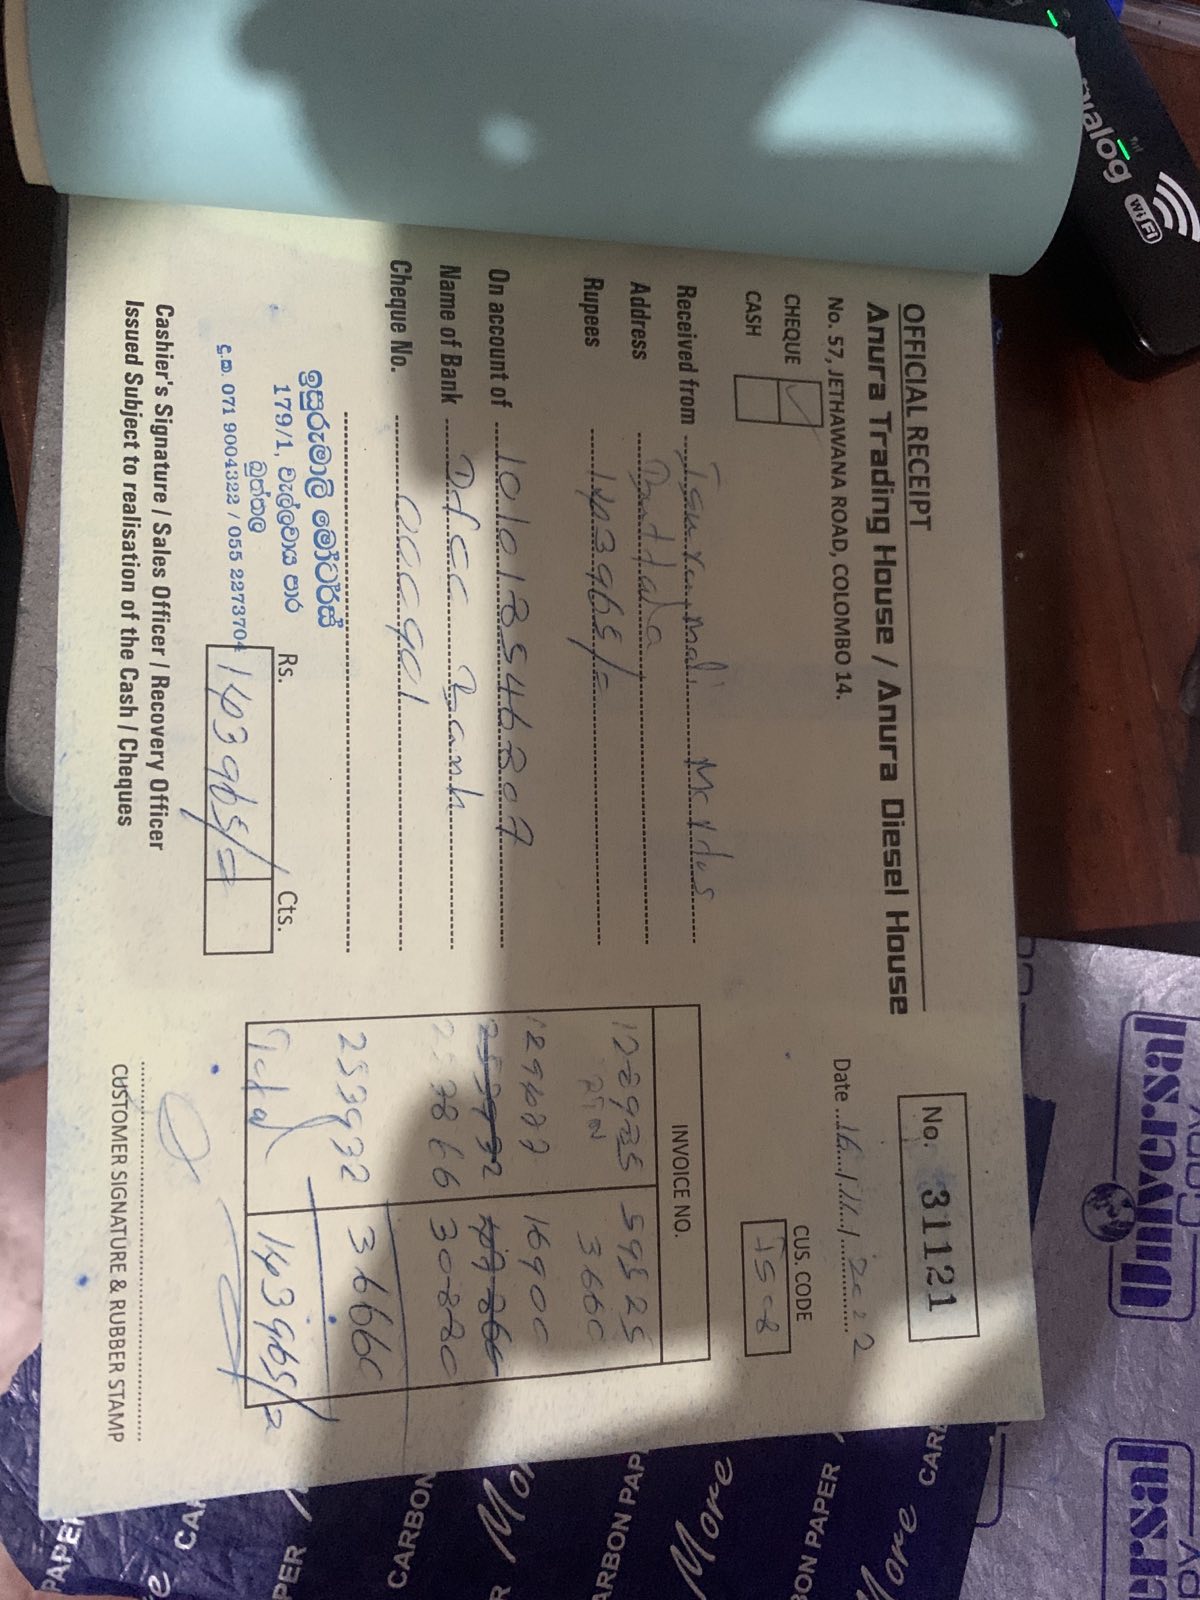 OFFICIAL RECEIPT
Anura Trading House / Anura Diesel House
No. 57, JETHAWANA ROAD, COLOMBO 14.
No. 31121
Date 16/11/2022
CHEQUE ✓
CASH
CUS. CODE
IS-8
Received from
Address Buttala
Rupees 143965/=
On account of
Name of Bank Dfcc Bank
Cheque No. 000901
ඉසුරුමාලි මෝටර්ස්
179/1, වැල්ලවාය පාර
බුත්තල
දු.ක. 071 9004322 / 055 2273704
Rs. Cts.
143965/=
Cashier's Signature / Sales Officer / Recovery Officer
Issued Subject to realisation of the Cash / Cheques
INVOICE NO.
59525
RTN 3660
16900
253932
253866 30880
253932 36660
Total 143965/=
CUSTOMER SIGNATURE & RUBBER STAMP
Dialog
WiFi
universal
universal
CARBON PAPER
More
CARBON PAPER
More
CARBON
More